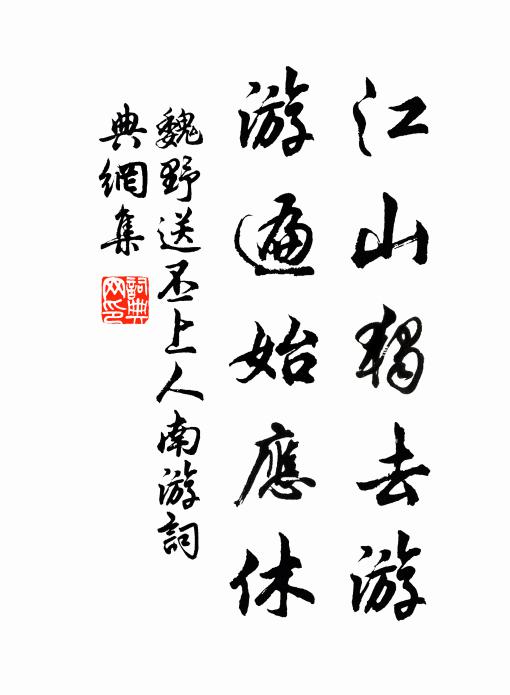 江山獨去游
游遍始應休
魏野送丕上人南游詞
典網集
詞典
网印